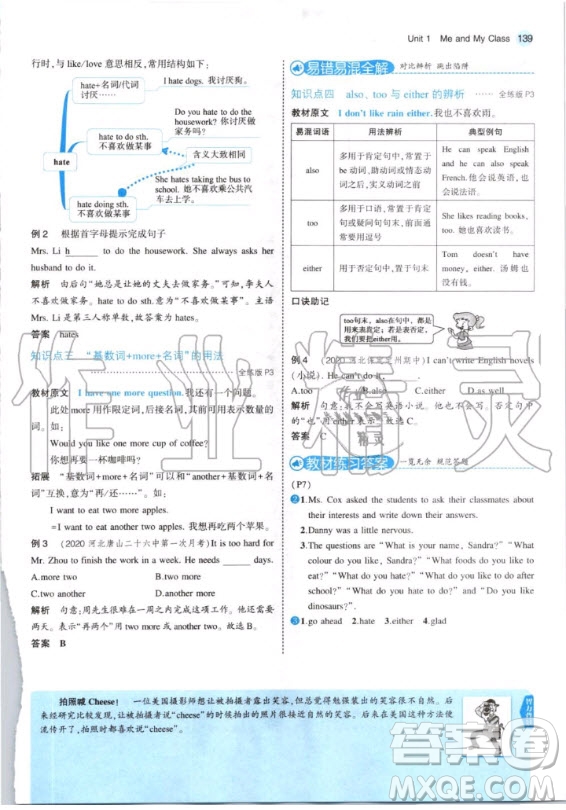 Unit 1 Me and My Class 139
行时,与 like/love 意思相反,常用结构如下:
hate
hate+名词/代词
讨厌……
I hate dogs. 我讨厌狗。
hate to do sth.
不喜欢做某事
Do you hate to do the
housework? 你讨厌做
家务吗?
含义大致相同
hate doing sth.
不喜欢做某事
She hates taking the bus to
school. 她不喜欢乘公共汽
车去上学。
例 2 根据首字母提示完成句子
Mrs. Li h to do the housework. She always asks her
husband to do it.
解析 由后句“她总是让她的丈夫去做家务。”可知,李夫人
不喜欢做家务。hate to do sth.意为“不喜欢做某事”。主语
Mrs. Li 是第三人称单数,故答案为 hates。
答案 hates
知识点三 “基数词+more+名词”的用法
全练版 P3
教材原文 I have one more question.我还有一个问题。
此处 more 用作限定词,后接名词,可用来表示数量的
例如:
Would you like one more cup of coffee?
你想要再喝一杯咖啡吗?
拓展 “基数词+more+名词”可以和“another+基数词+
名词”互换。例如:
I want to eat two more apples.
=I want to eat another two apples.我想再吃两个苹果。
例 3 (2020 河北唐山二十六中第一次月考)It is too hard for
Mr. Zhou to finish the work in a week. He needs days.
A.more two B.two more
C.two another D.another more
解析 句意:周先生很难在一周之内完成这项工作。他还需
要两天。“再两个”用 two more 或 another two 表示。故选 B。
答案 B
易错易混全解 对比辨析 跳出陷阱
知识点四 also、too 与 either 的辨析 …… 全练版 P3
教材原文 I don't like rain either.我也不喜欢雨。
易混词语 用法辨析 典型例句
also 多用于肯定句中,常置于 be 动词、助动词或情态动词之后 He can speak English and he can also speak French.他会说英语,也会说法语。
too 多用于口语,常置于肯定句或疑问句句末,前面通常要用逗号 She likes reading books, too. 她也喜欢读书。
either 用于否定句中,常置于句末 Tom doesn't have money, either. 汤姆也没有钱。
口诀助记
too句末,also在句中,
用来表肯定;若表否定,
勿忘把either用。
例 4 (2020 河北保定定州期中) I can't write English novels
(小说). He can't do it .
A.too B.also C.either D.as well
解析 句意:我不会写英语小说。他也不会写。否定句中
的“也”用 either 表示。故选 C。
答案 C
教材练习答案 一览无余 规范答题
(P7)
2 1.Ms. Cox asked the students to ask their classmates about
their interests and write down their answers.
2.Danny was a little nervous.
3.The questions are “What is your name, Sandra?” “What
colour do you like, Sandra?” “What foods do you like to
eat?” “What do you hate?” “What do you like to do after
school?” “What do you hate to do?” and “Do you like
dinosaurs?”.
3 1.go ahead 2.hate 3.either 4.glad
拍照喊 Cheese! 一位美国摄影师想让被拍摄者露出笑容,但总觉得勉强装出的笑容不自然。后
来经研究比较发现,让被拍摄者说“cheese”的时候拍出的照片很接近于笑容。后来在美国这种方法便
流传开了,拍照时都喜欢说“cheese”。
作业精灵
作业
精灵
答案圈
MXQE.COM